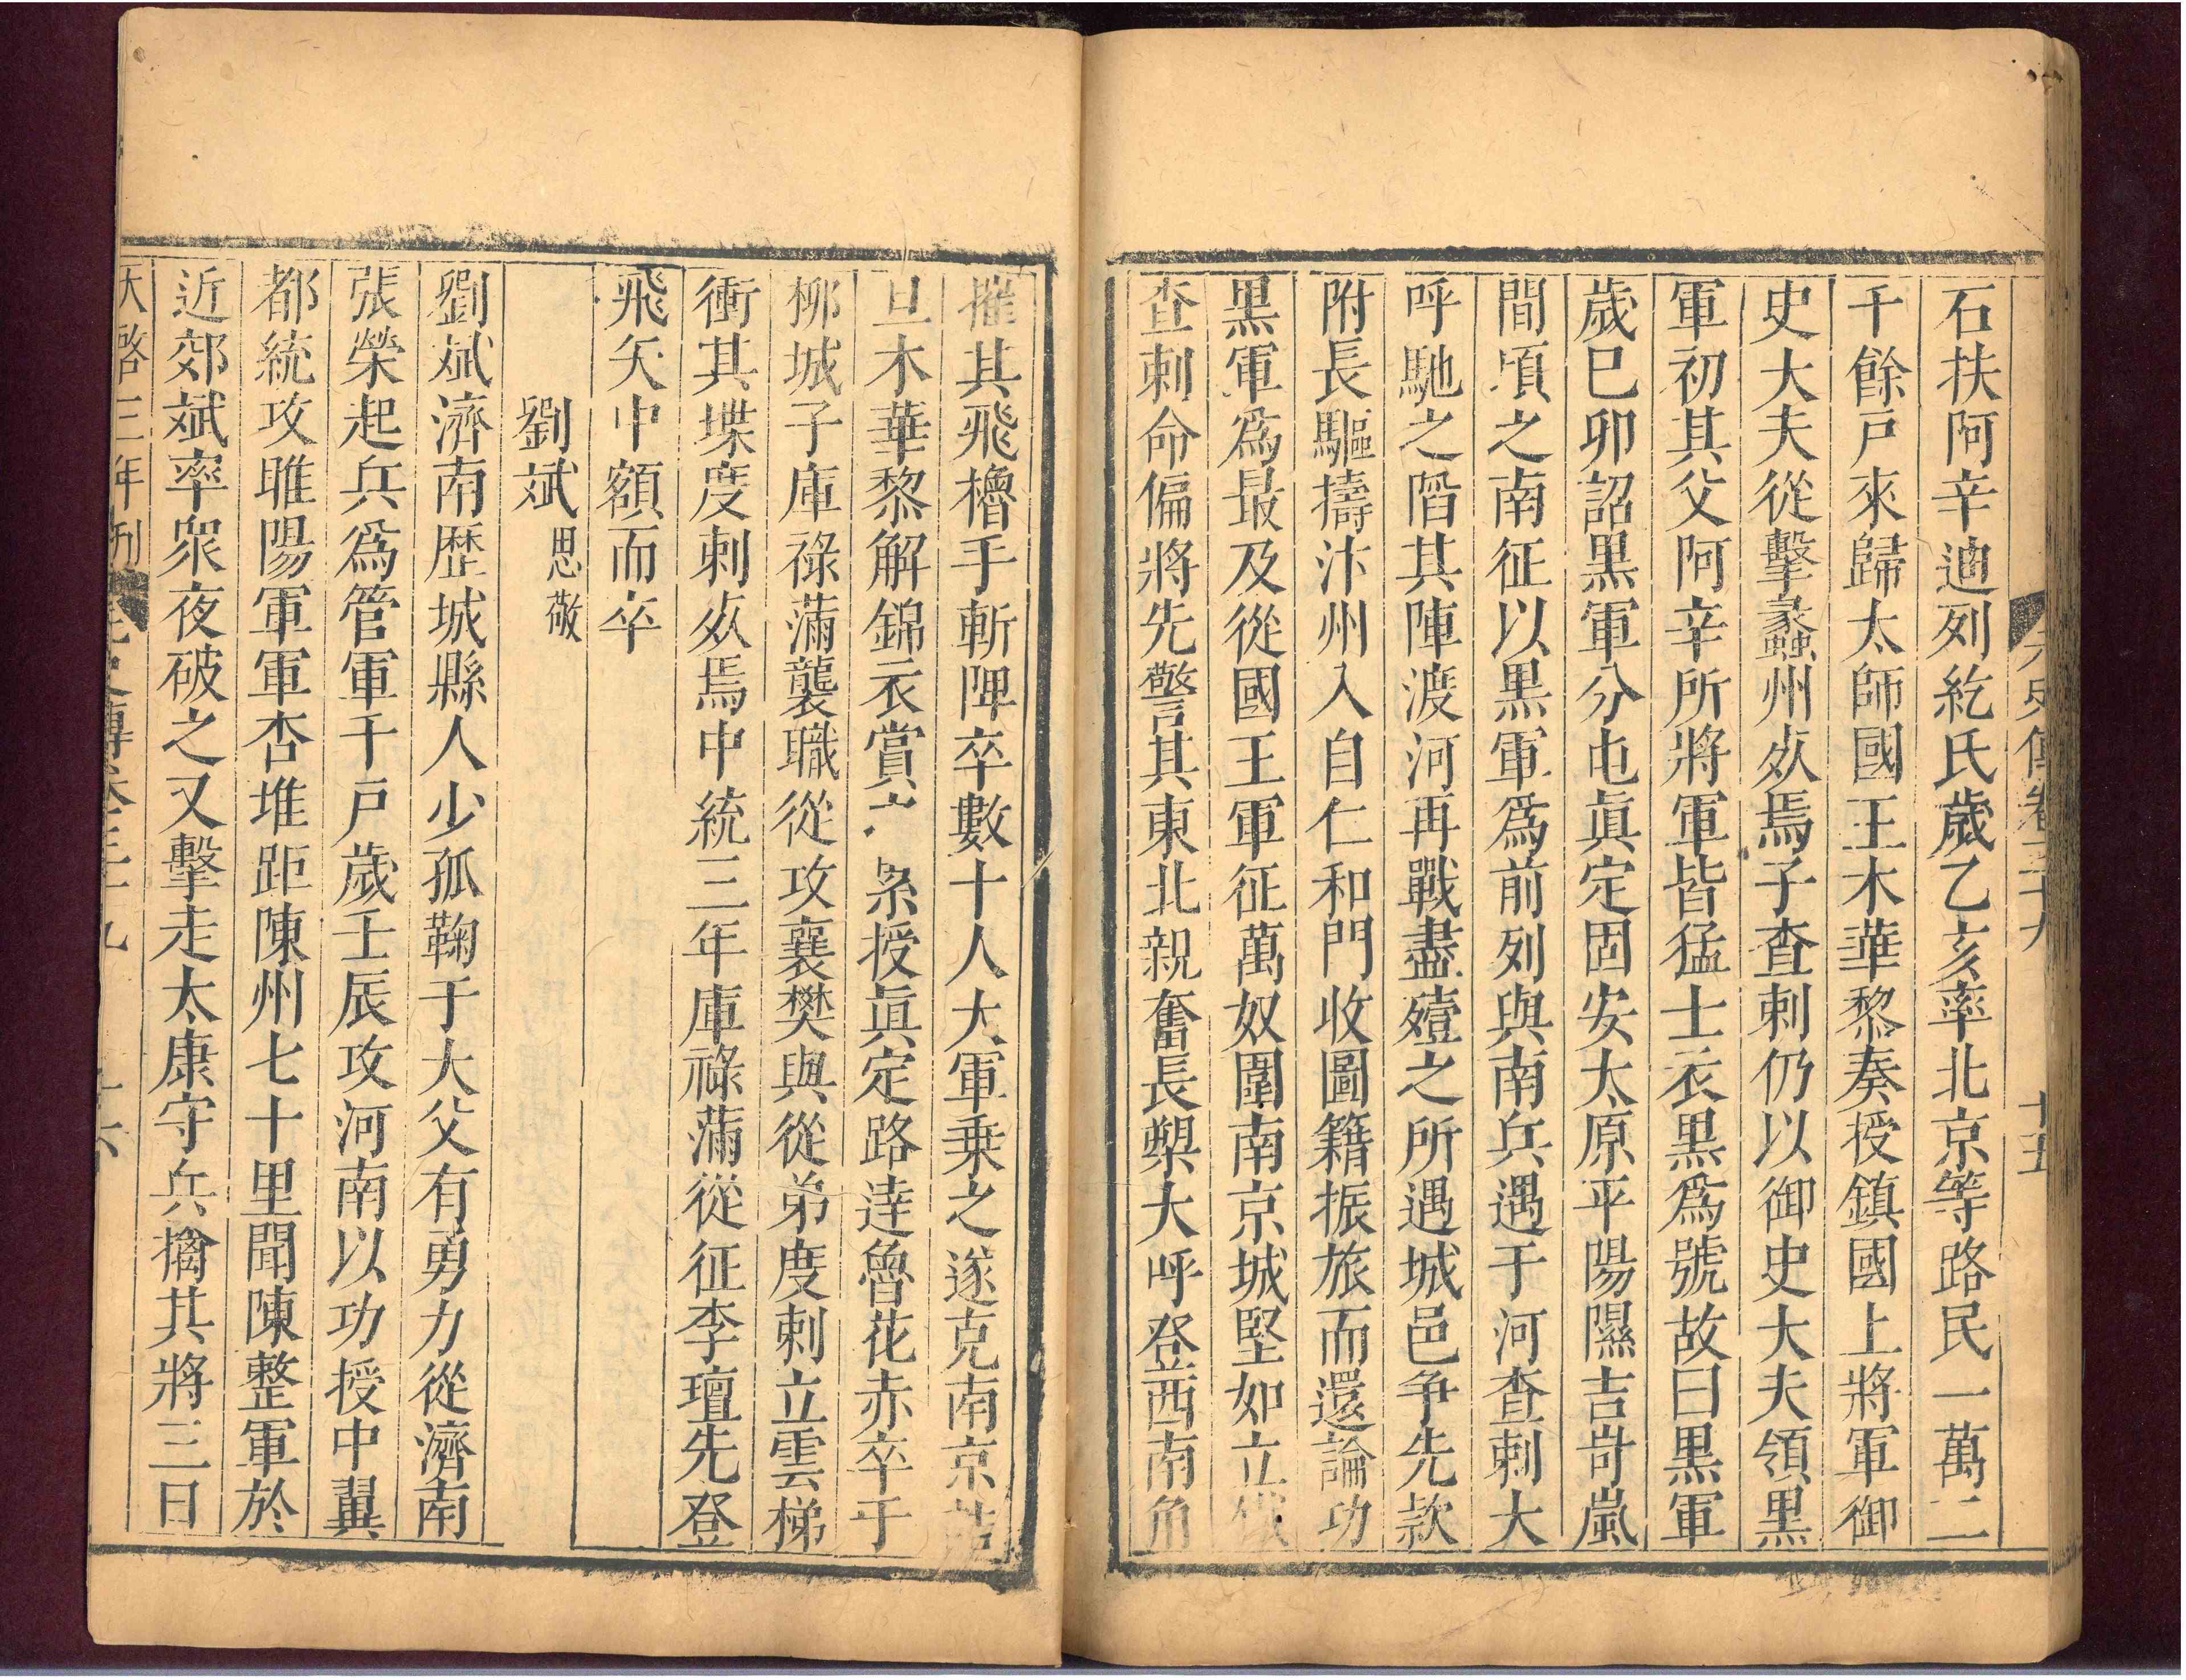 石扶阿辛迪列紇氏歲乙亥率北京等路民一萬二
千餘戶來歸太師國王木華黎奏授鎮國上將軍御
史大夫從擊蠡州死焉子查剌仍以御史大夫領黑
軍初其父阿辛所將軍皆猛士衣黑爲號故曰黑軍
歲巳卯詔黑軍分屯眞定固安太原平陽隰吉岢嵐
間頃之南征以黑軍爲前列與南兵遇于河查剌大
呼馳之陷其陣渡河再戰盡殪之所遇城邑爭先款
附長驅擣汴州入自仁和門收圖籍振旅而還論功
黑軍爲最及從國王軍征萬奴圍南京城堅如立
查剌命偏將先警其東北親奮長槊大呼登西南角
摧其飛櫓手斬陴卒數十人大軍乗之遂克南京
旦木華黎解錦衣賞 授眞定路達魯花赤卒于
柳城子庫祿滿襲職從攻襄樊與從弟度剌立雲梯
衝其堞度剌死焉中統三年庫祿滿從征李璮先登
飛矢中額而卒
劉斌 思敬
劉斌濟南歷城縣人少孤鞠于大父有勇力從濟南
張榮起兵爲管軍千戶歲壬辰攻河南以功授中翼
都統攻睢陽軍軍杏堆距陳州七十里聞陳整軍於
近郊斌率衆夜破之又擊走太康守兵擒其將三日